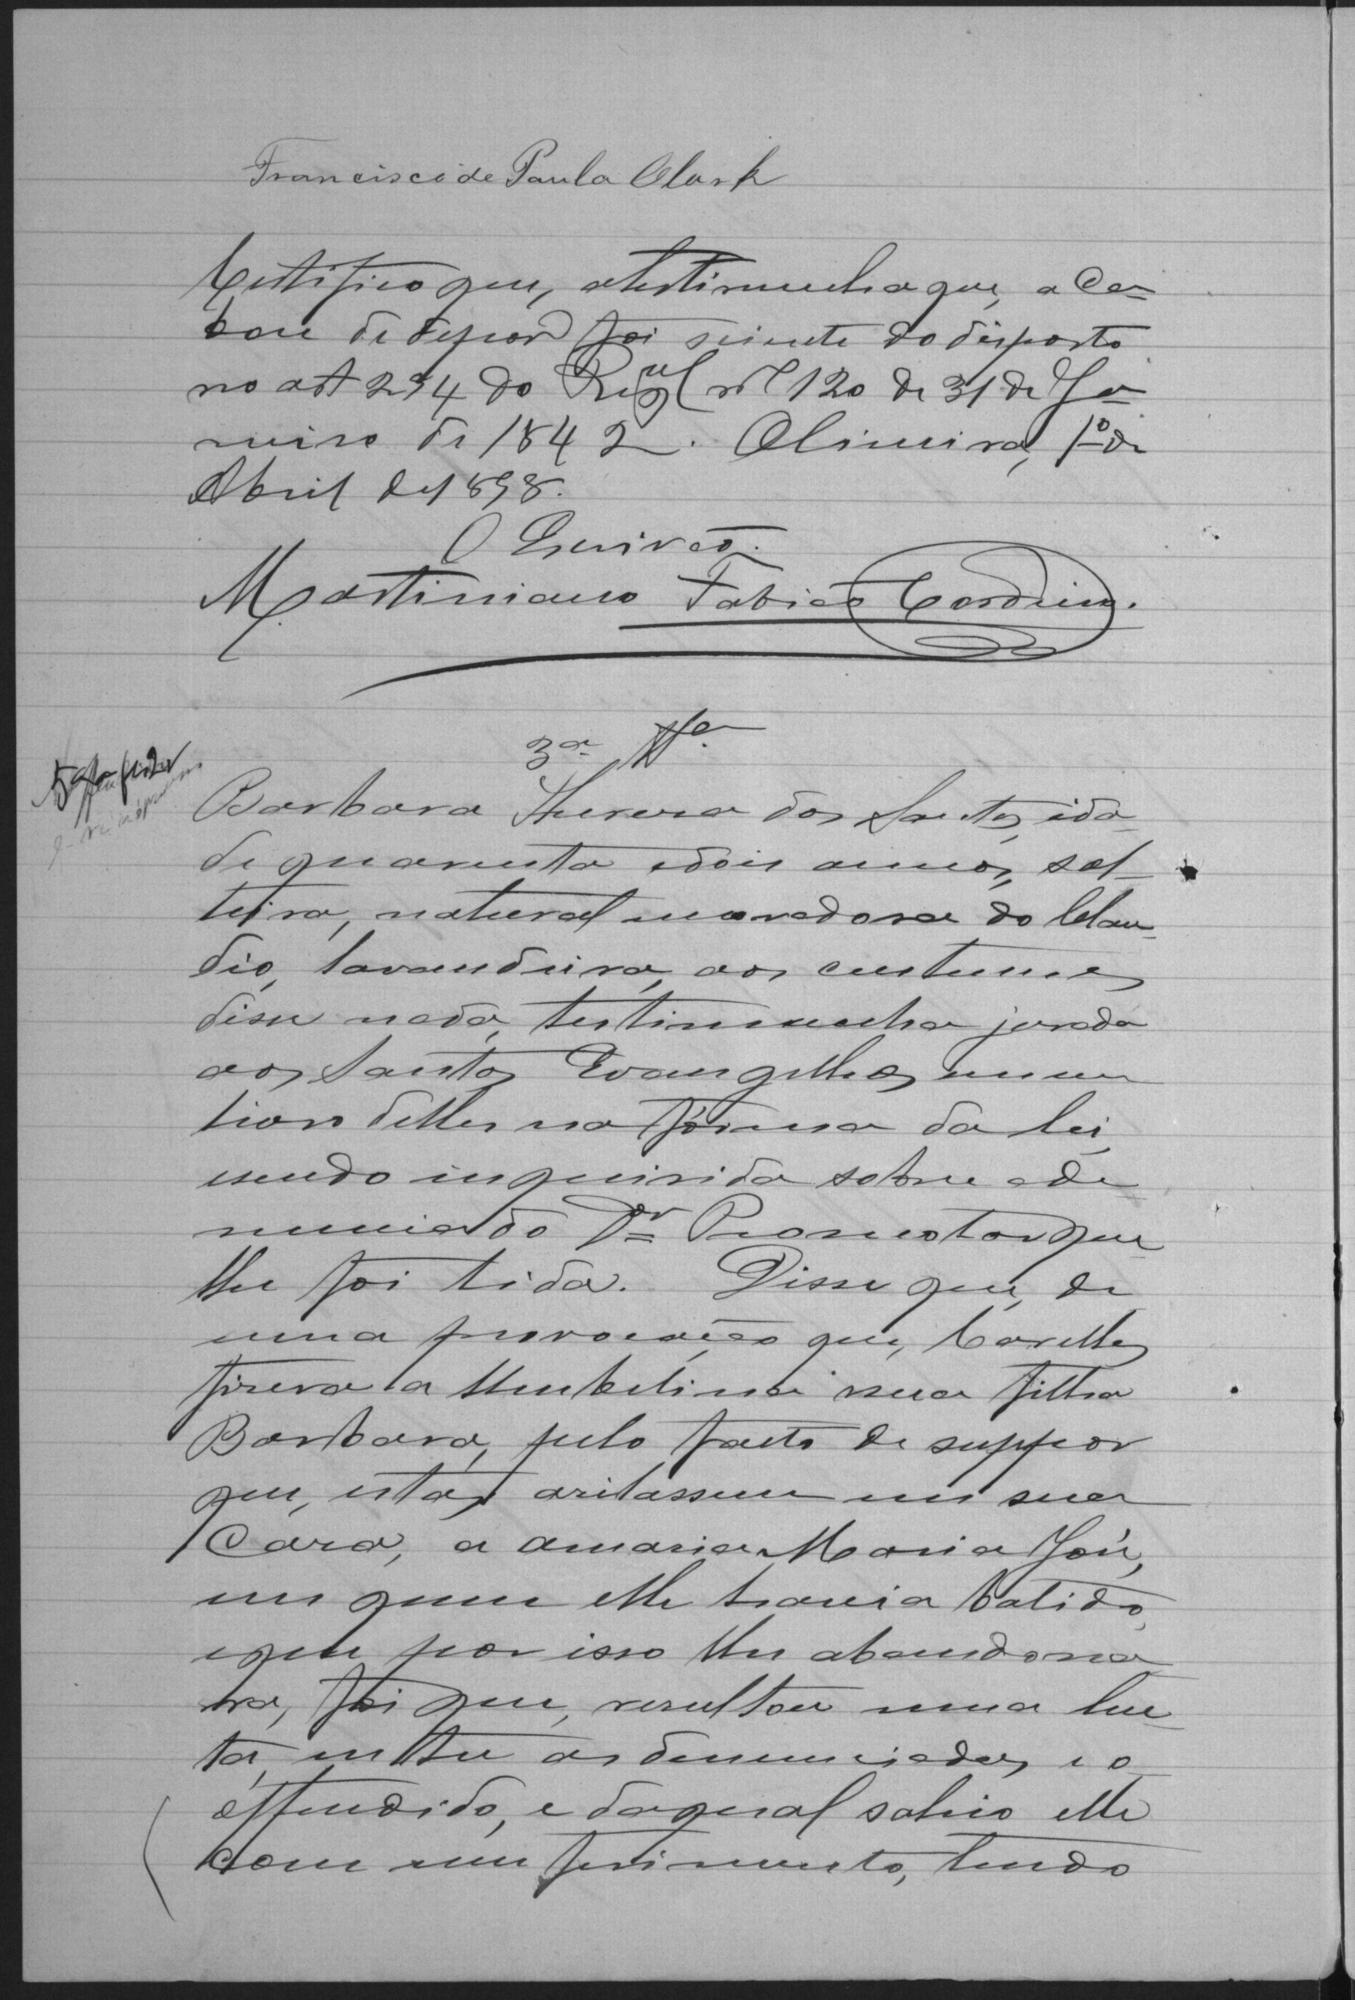 Francisco de Paula Clark
Certifico que, a testimunha que, aca-
bou de depor foi sciente do disposto
no art 294 do Regul nº 120 de 31 de Ja-
neiro de 1842. Oliveira, 1º de
Abril de 1898.
O Escrivão.
Martiniano Fabião Cordeiro.
3ª Tta
Barbara Thereza dos Santos, ida-
de quarenta e dois annos, sol-
teira, natural moradora do Clau-
dio, lavandeira, aos custumes
disse nada, testimunha jurada
aos Santos Evangelhos num
livro delles na fórma da lei,
e sendo inquirida sobre a de-
nuncia do Dr Promotor que
lhe foi lida. Disse que, de
uma provocação que, Carellos
fizera a Umbelina e sua filha
Barbara, pelo facto de suppor
que, estas aceitassem em sua
casa, a amasia Maria José,
em quem elle havia batido,
e que por isso lhe abandona-
ra, foi que, resultou uma luc-
ta, entre as denunciadas e o
offendido, e da qual sahio elle
com um ferimento, tendo